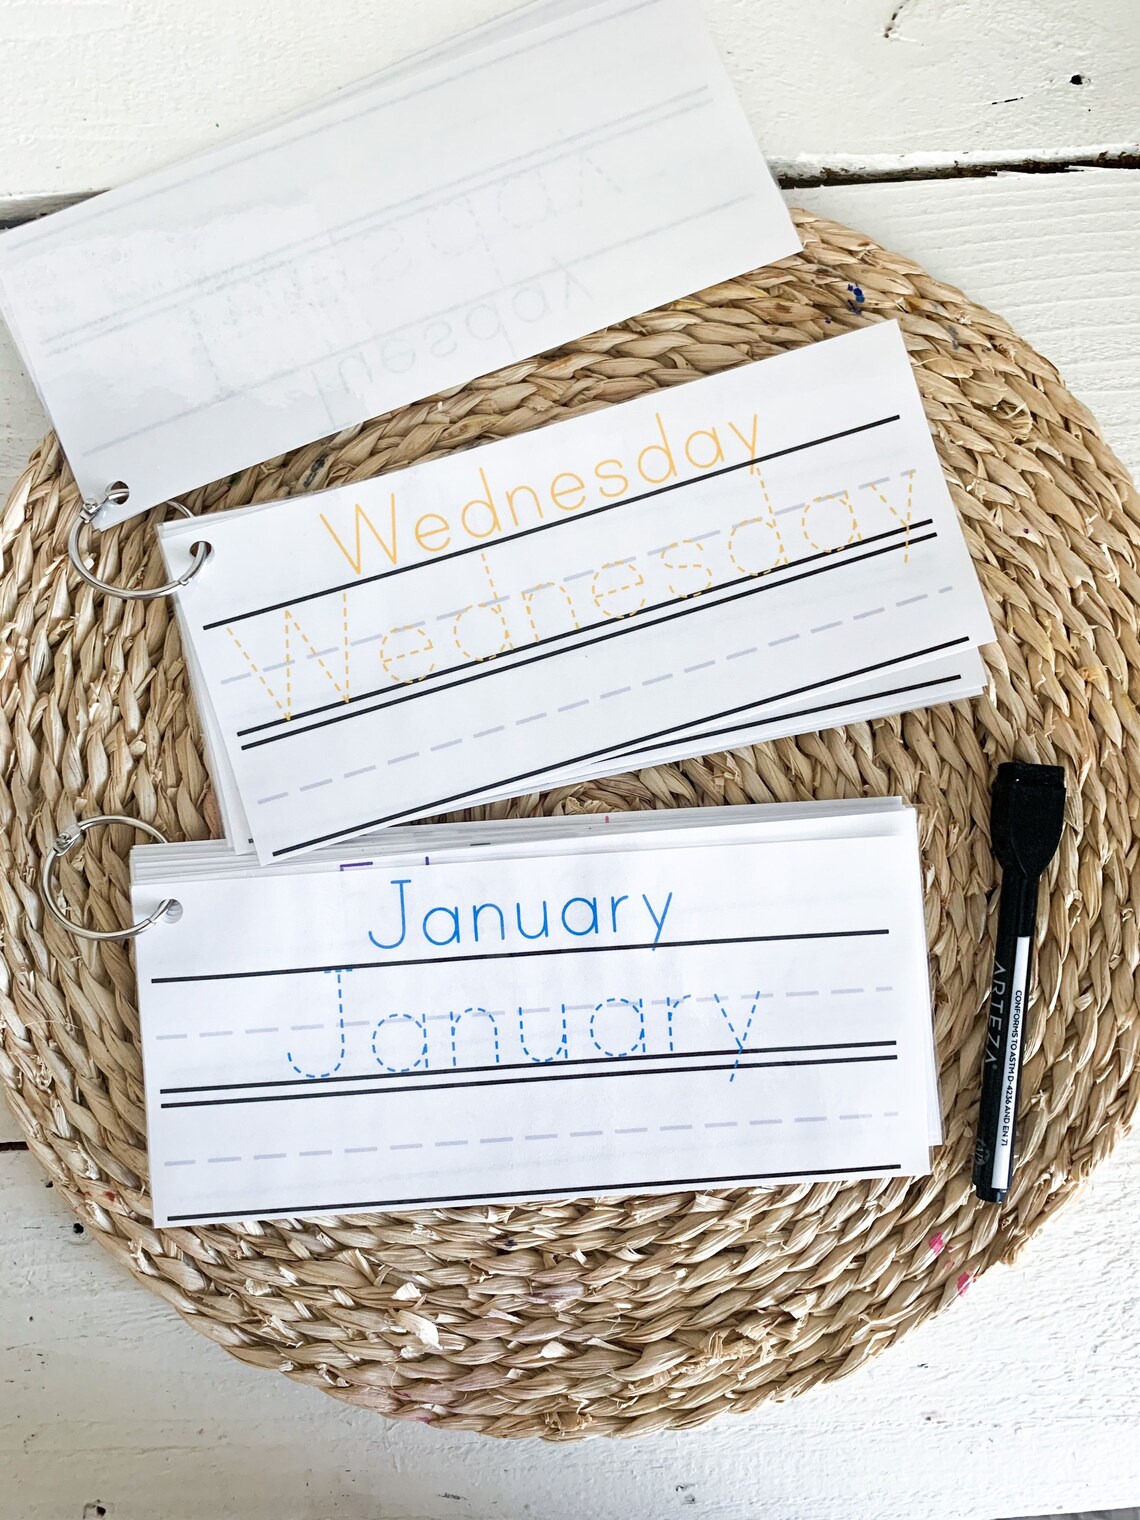 Tuesday
Tuesday
Wednesday
Wednesday
January
January
ARTEZA
CONFORMS TO ASTM D-4236 AND EN 71